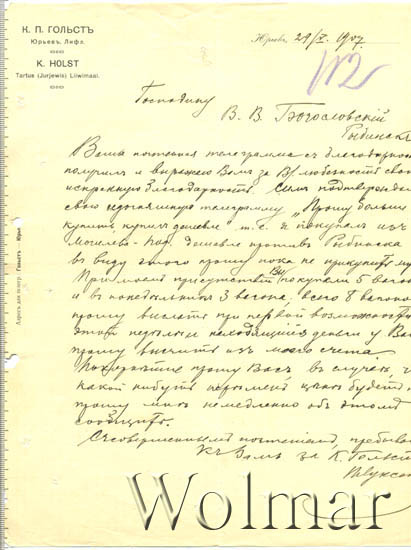 К. П. ГОЛЬСТЪ
Юрьевъ, Лифл.
K. HOLST
Tartus (Jurjewis) Liiwimaal.
Юрьевъ, 29/X 1907
№2
Господину
В. В. Богословскій
Рыбинскъ
Ваша почтенная телеграмма съ благодарностью
получилъ и выражаю Вамъ за В/ любезность свою
искреннюю благодарность. Симъ подтверждаю
свою сегодняшную телеграмму „Прошу больше
купить дешевле" т. е. я покупалъ изъ
Могилева-Под. дешевле противъ Рыбинска
въ виду этого прошу пока не
При моемъ присутствіи Вы покупали 5 вагон
и въ понедѣльникъ 3 вагона, всего 8 вагоно
прошу выслать при первой возможности
этой недѣли находящійся деньги у Вас
прошу вычесть изъ моего счета
прошу Васъ въ случаѣ,
какой нибудь цѣнъ будетъ
прошу мнѣ немедленно объ этомъ
сообщить.
Съ совершеннымъ почтеніемъ, пребываю
къ Вамъ за К. Гольст
Адресъ для телегр. Гольстъ — Юрьевъ
Wolmar